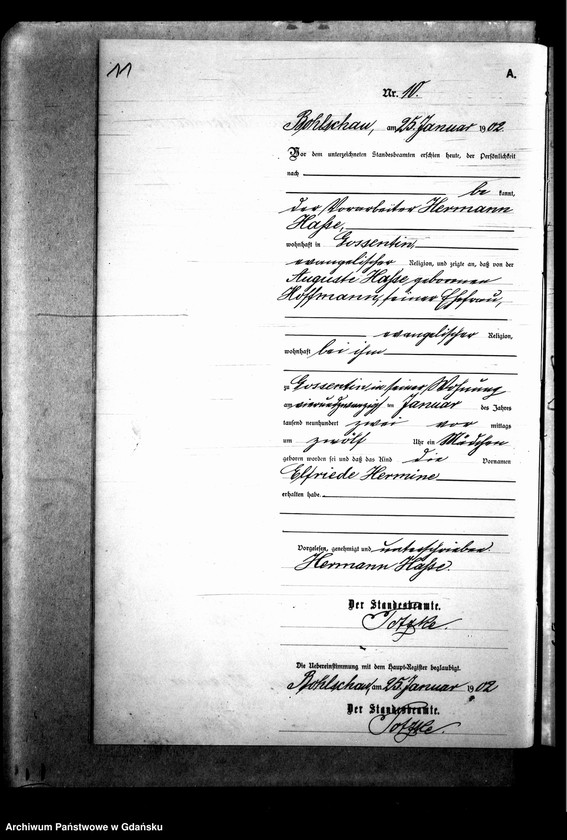 11
A.
Nr. 10.
Bohlschau, am 25. Januar 1902.
Vor dem unterzeichneten Standesbeamten erschien heute, der Persönlichkeit
nach
be kannt,
der Vorarbeiter Hermann
Hasse,
wohnhaft in Gossentin,
evangelischer Religion, und zeigte an, daß von der
Auguste Hasse geborenen
Hoffmann, seiner Ehefrau,
evangelischer Religion,
wohnhaft bei ihm
zu Gossentin in seiner Wohnung
am vierundzwanzigsten Januar des Jahres
tausend neunhundert zwei vor mittags
um zwölf Uhr ein Mädchen
geboren worden sei und daß das Kind die Vornamen
Elfriede Hermine
erhalten habe.
Vorgelesen, genehmigt und unterschrieben.
Hermann Hasse.
Der Standesbeamte.
Totzke.
Die Uebereinstimmung mit dem Haupt-Register beglaubigt.
Bohlschau, am 25. Januar 1902
Der Standesbeamte.
Totzke.
Archiwum Państwowe w Gdańsku